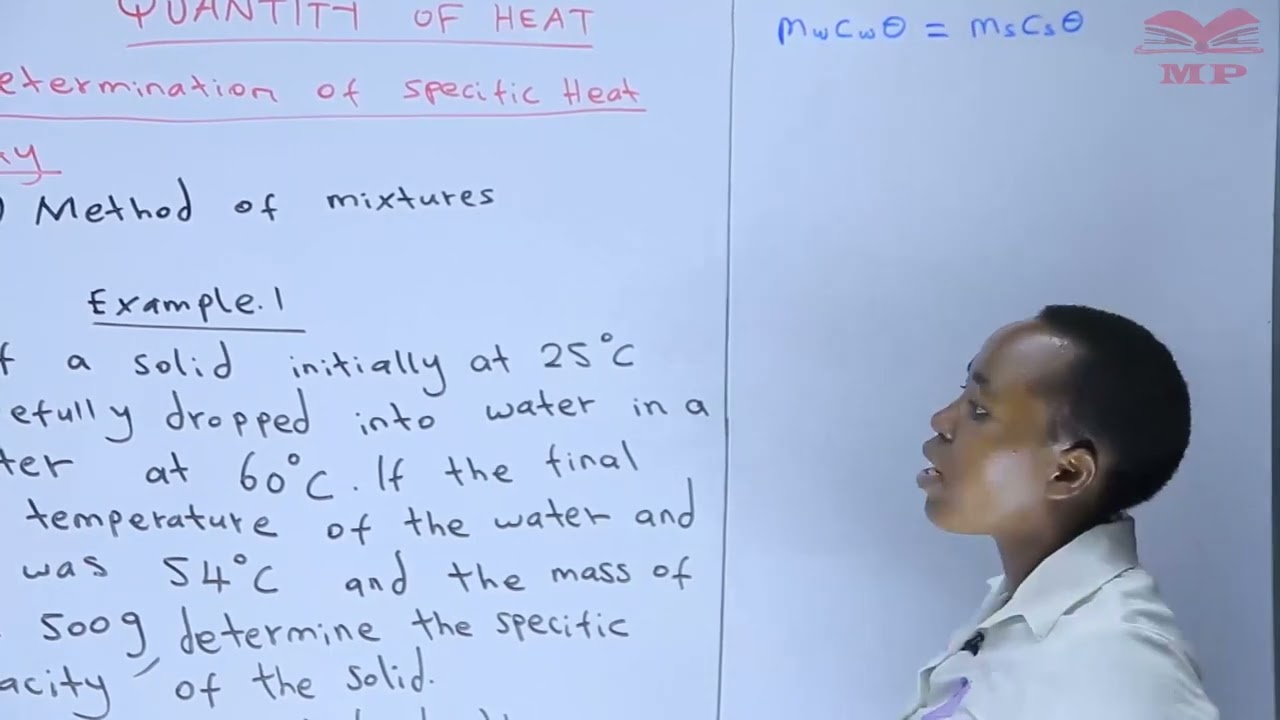 QUANTITY OF HEAT
etermination of specific Heat
Method of mixtures
Example.1
a solid initially at 25°C
efully dropped into water in a
ter at 60°C. If the final
temperature of the water and
was 54°C and the mass of
500g determine the specific
acity of the solid.
MwCwθ = MsCsθ
MP